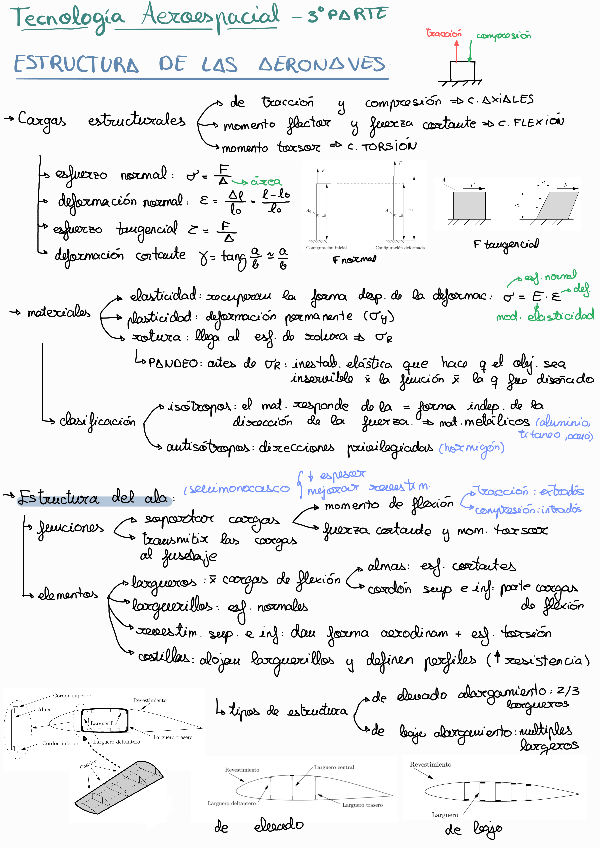 Tecnología Aeroespacial - 3º PARTE
tracción compresión
ESTRUCTURA DE LAS AERONAVES
→ Cargas estructurales
de tracción y compresión ⇒ C. AXIALES
momento flector y fuerza cortante ⇒ C. FLEXIÓN
momento torsor ⇒ C. TORSIÓN
esfuerzo normal: σ = F/A → área
deformación normal: ε = Δl/l₀ = l-l₀/l₀
esfuerzo tangencial τ = F/A
deformación cortante γ = tang a/b ≈ a/b
Configuración inicial Configuración deformada
F normal
F tangencial
→ materiales
elasticidad: recuperan la forma desp. de la deformac: σ = E · ε
esf. normal
def.
mod. elasticidad
plasticidad: deformación permanente (σy)
rotura: llega al esf. de rotura ⇒ σR
PANDEO: antes de σR: inestab. elástica que hace q el obj. sea
inservible x la función x la q fue diseñado
clasificación
isótropos: el mat. responde de la = forma indep. de la
dirección de la fuerza ⇒ mat. metálicos (aluminio,
titaneo, acero)
antisótropos: direcciones privilegiadas (hormigón)
→ Estructura del ala:
(semimonocasco
↓ espesor
mejorar revestim.
funciones
soportar cargas
momento de flexión
tracción: extradós
compresión: intradós
fuerza cortande y mom. torsor
transmitir las cargas
al fuselaje
elementos
largueros: x cargas de flexión
almas: esf. cortantes
cordón sup e inf: parte cargas
de flexión
larguerillos: esf. normales
revestim. sup. e inf: dan forma aerodinam + esf. torsión
costillas: alojan larguerillos y definen perfiles (↑ resistencia)
Revestimiento
Larguerillo
Larguero delantero
Larguero trasero
tipos de estructura
de elevado alargamiento: 2/3
largueros
de bajo alargamiento: multiples
largeros
Revestimiento
Larguero central
Larguero delantero
Larguero trasero
de elevado
Revestimiento
Larguero
de bajo